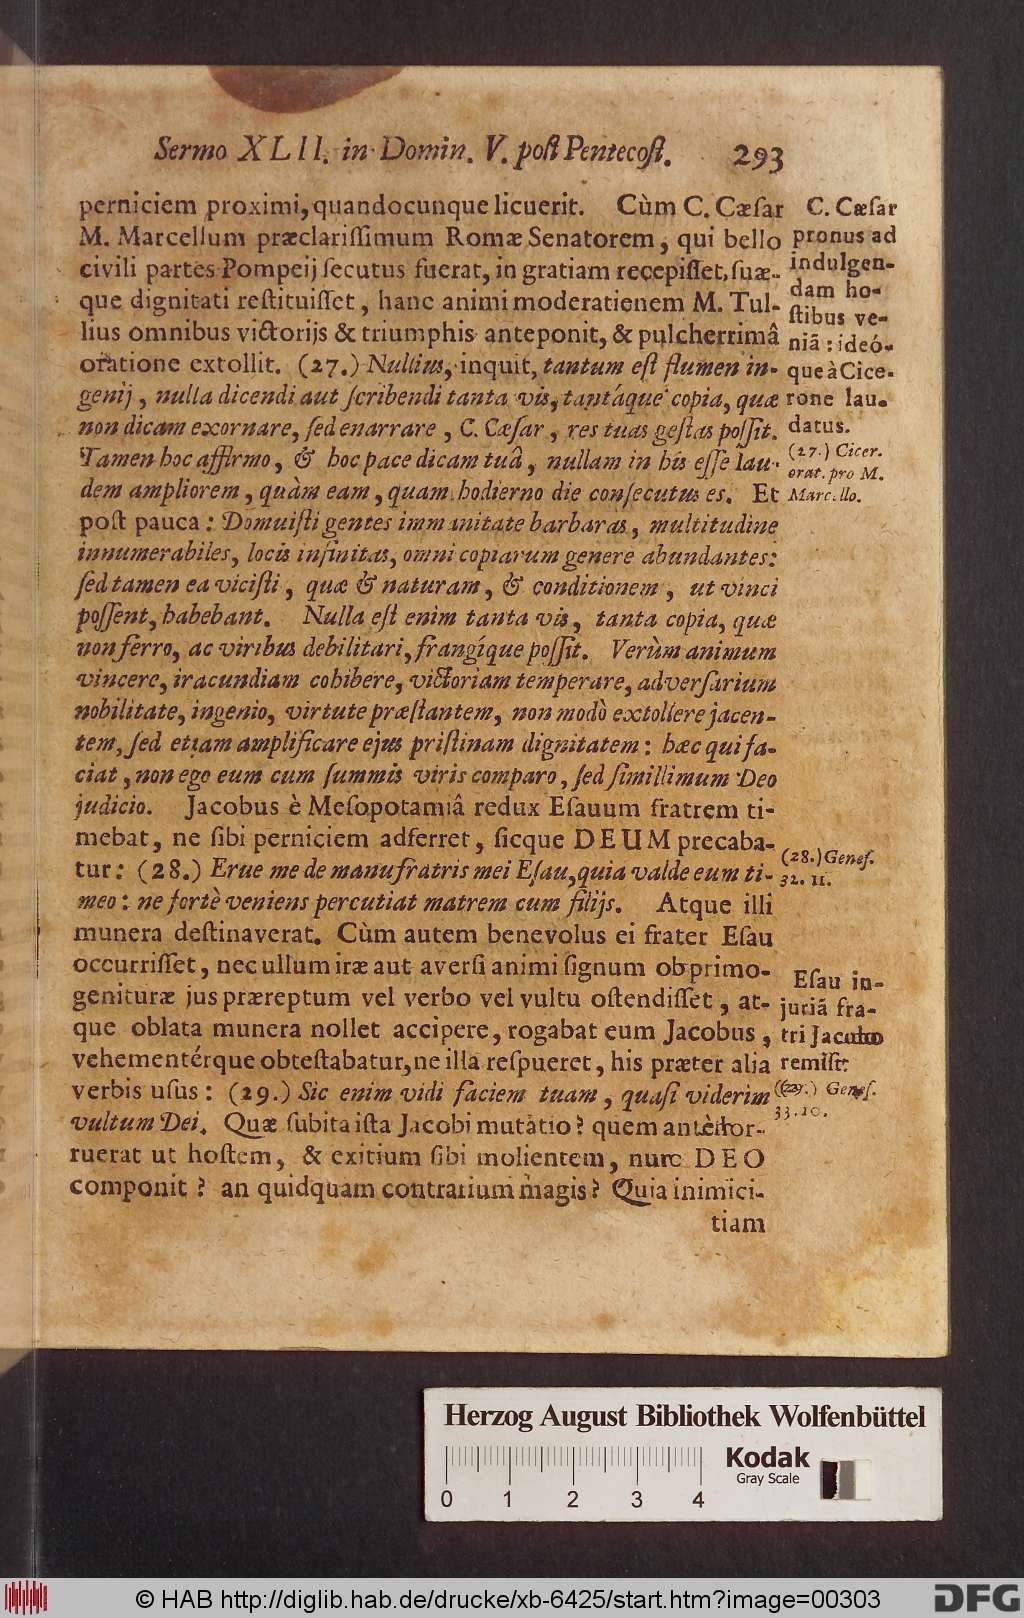 Sermo XLII. in Domin. V. poſt Pentecoſt. 293
perniciem proximi, quandocunque licuerit. Cùm C. Cæſar
M. Marcellum præclariſſimum Romæ Senatorem, qui bello
civili partes Pompeij ſecutus fuerat, in gratiam recepiſſet, ſuæ-
que dignitati reſtituiſſet, hanc animi moderationem M. Tul-
lius omnibus victorijs & triumphis anteponit, & pulcherrimâ
oratione extollit. (27.) Nullius, inquit, tantum eſt flumen in-
genij, nulla dicendi aut ſcribendi tanta vis, tantáque copia, quæ
non dicam exornare, ſed enarrare, C. Cæſar, res tuas geſtas poſſit.
Tamen hoc affirmo, & hoc pace dicam tuâ, nullam in his eſſe lau-
dem ampliorem, quàm eam, quam hodierno die conſecutus es. Et
poſt pauca: Domuiſti gentes immanitate barbaras, multitudine
innumerabiles, locis infinitas, omni copiarum genere abundantes:
ſed tamen ea viciſti, quæ & naturam, & conditionem, ut vinci
poſſent, habebant. Nulla eſt enim tanta vis, tanta copia, quæ
non ferro, ac viribus debilitari, frangíque poſſit. Verùm animum
vincere, iracundiam cohibere, victoriam temperare, adverſarium
nobilitate, ingenio, virtute præſtantem, non modò extollere jacen-
tem, ſed etiam amplificare ejus priſtinam dignitatem: hæc qui fa-
ciat, non ego eum cum ſummis viris comparo, ſed ſimillimum Deo
judicio. Jacobus è Meſopotamiâ redux Eſauum fratrem ti-
mebat, ne ſibi perniciem adferret, ſicque DEUM precaba-
tur: (28.) Erue me de manu fratris mei Eſau, quia valde eum ti-
meo: ne fortè veniens percutiat matrem cum filijs. Atque illi
munera deſtinaverat. Cùm autem benevolus ei frater Eſau
occurriſſet, nec ullum iræ aut averſi animi ſignum ob primo-
genituræ jus præreptum vel verbo vel vultu oſtendiſſet, at-
que oblata munera nollet accipere, rogabat eum Jacobus,
vehementérque obteſtabatur, ne illa reſpueret, his præter alia
verbis uſus: (29.) Sic enim vidi faciem tuam, quaſi viderim
vultum Dei. Quæ ſubita iſta Jacobi mutatio? quem antè hor-
ruerat ut hoſtem, & exitium ſibi molientem, nunc DEO
componit? an quidquam contrarium magis? Quia inimici-
tiam
C. Cæſar
pronus ad
indulgen-
dam ho-
ſtibus ve-
niã: ideó-
que à Cice-
rone lau-
datus.
(27.) Cicer.
orat. pro M.
Marcello.
(28.) Geneſ.
32. 11.
Eſau in-
juriã fra-
tri Jacobo
remiſit.
(29.) Geneſ.
33. 10.
Herzog August Bibliothek Wolfenbüttel
Kodak
Gray Scale
0 1 2 3 4
© HAB http://diglib.hab.de/drucke/xb-6425/start.htm?image=00303
DFG